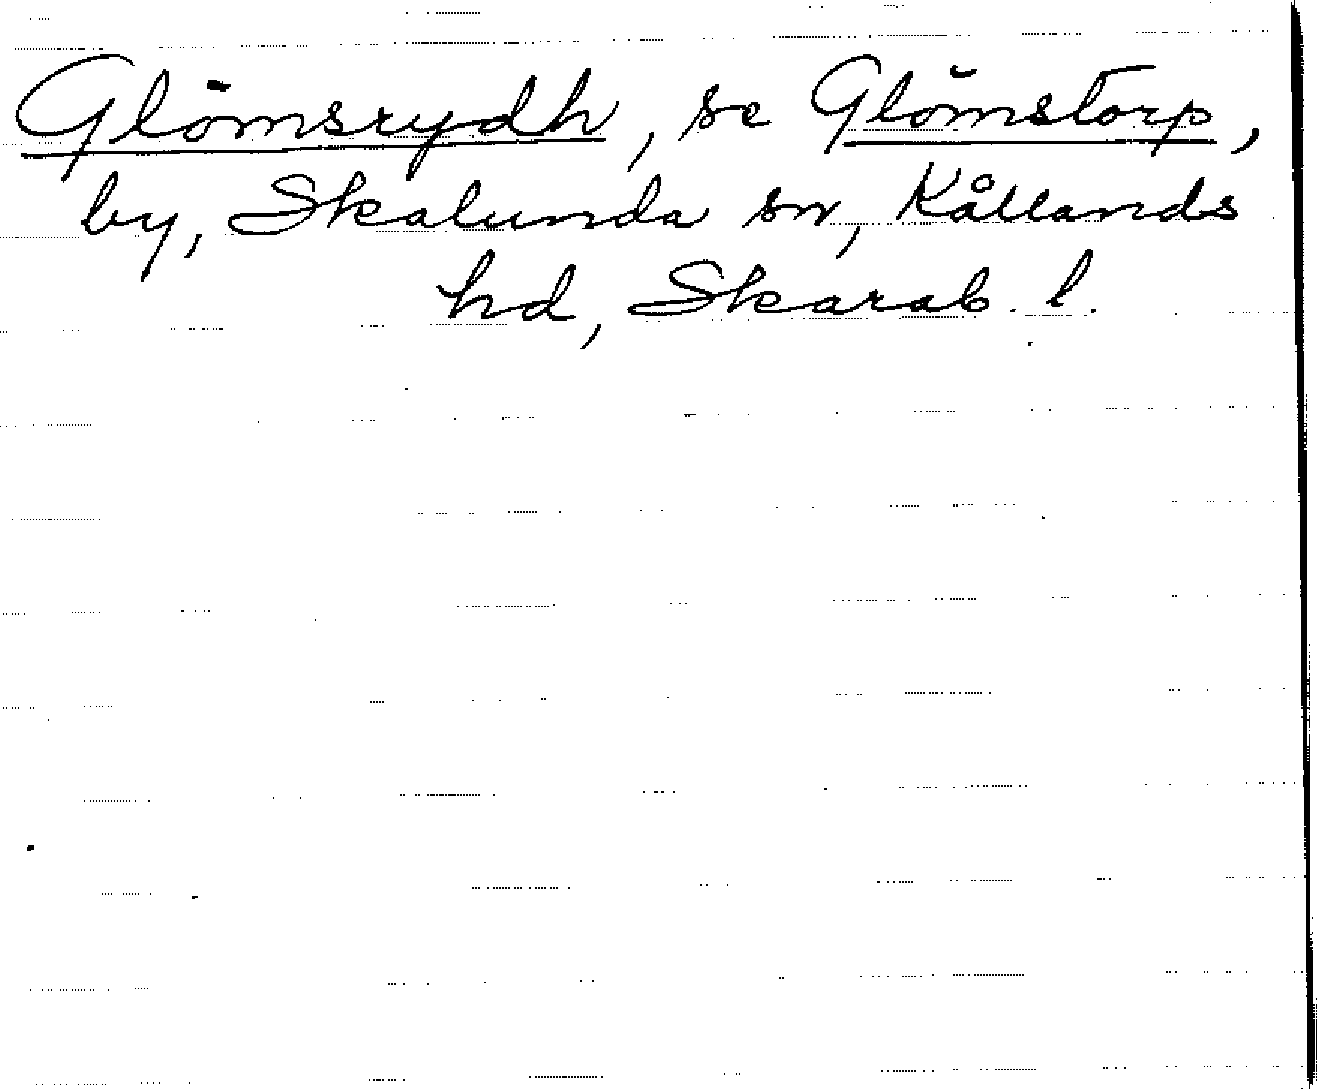 Glömsrydh, se Glömstorp,
by, Skalunda sn, Kållands
hd, Skarab. l.